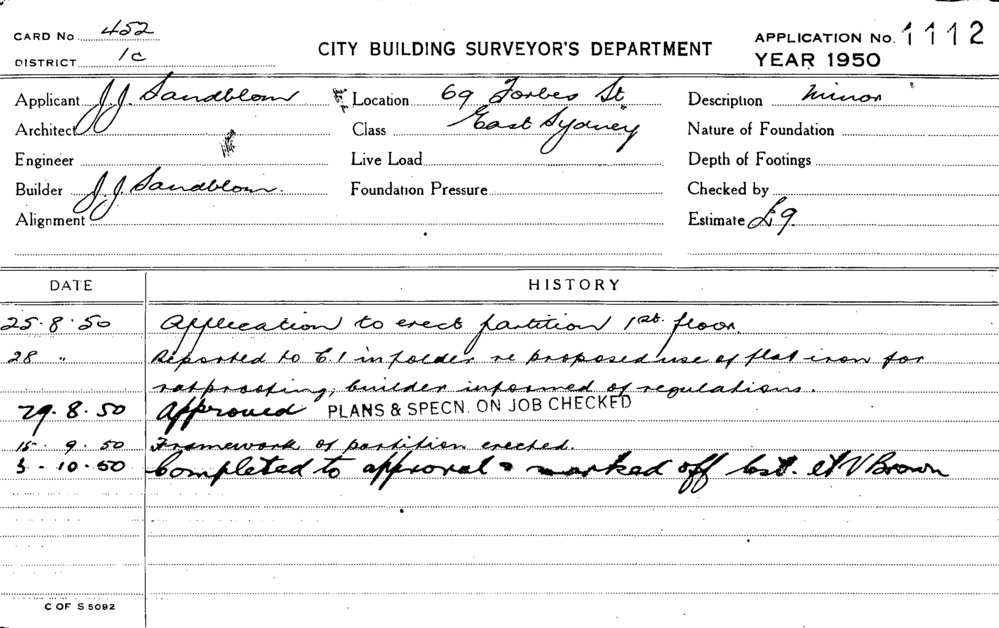 CARD No 452
DISTRICT 1C
CITY BUILDING SURVEYOR'S DEPARTMENT
APPLICATION No. 1112
YEAR 1950
Applicant J.J. Sandblom
Location 69 Forbes St
Description Minor
Architect
Class East Sydney
Nature of Foundation
Engineer
Live Load
Depth of Footings
Builder J.J. Sandblom.
Foundation Pressure
Checked by
Alignment
Estimate £9.
DATE HISTORY
25.8.50 Application to erect partition 1st. floor.
28 " Reported to C.I in folder re proposed use of flat iron for
ratproofing, builder informed of regulations.
29.8.50 Approved PLANS & SPECN. ON JOB CHECKED
15-9.50 Framework of partition erected.
3-10-50 Completed to approval & marked off Brown
C OF S 5092